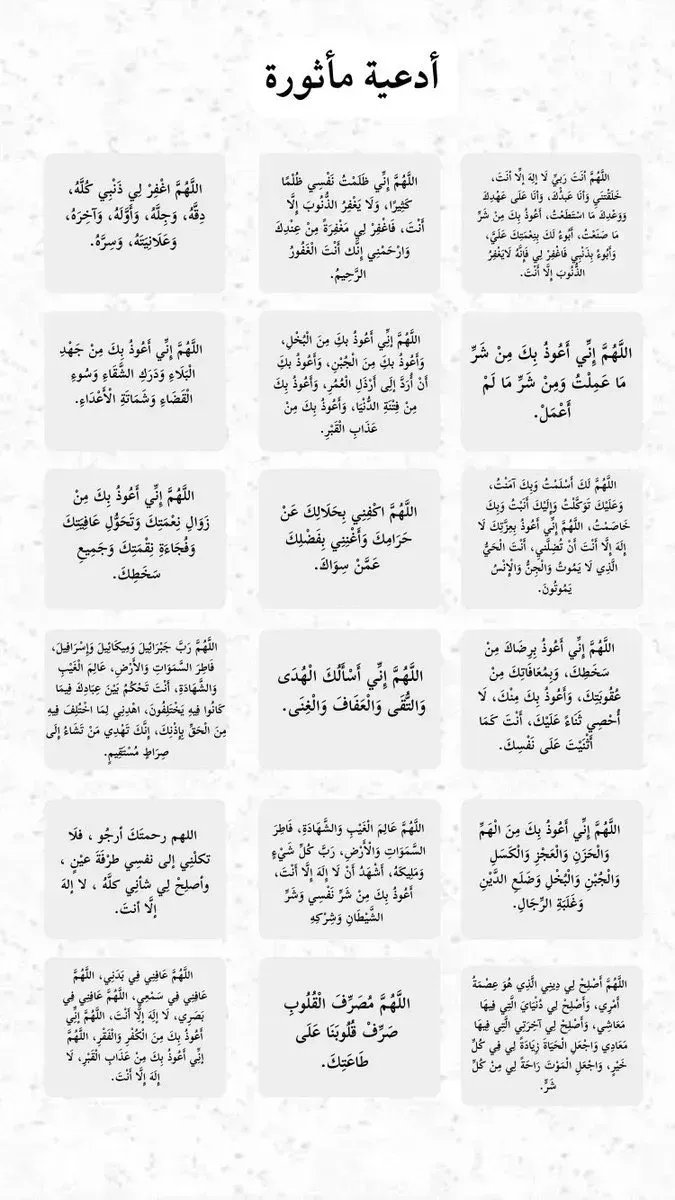 أدعية مأثورة
اللَّهُمَّ أنتَ رَبِّيْ لَا إلهَ إلَّا أنتَ،
خَلَقْتَنِي وَأنَا عَبدُكَ، وَأنَا عَلَى عَهْدِكَ
وَوَعْدِكَ مَا اسْتَطَعْتُ، أَعُوذُ بِكَ مِنْ شَرِّ
مَا صَنَعْتُ، أَبُوءُ لَكَ بِنِعْمَتِكَ عَلَيَّ،
وَأَبُوءُ بِذَنْبِي فَاغْفِرْ لِي فَإِنَّهُ لَايَغْفِرُ
الذُّنُوبَ إلَّا أَنْتَ.
اللَّهُمَّ إِنِّي ظَلَمْتُ نَفْسِي ظُلْمًا
كَثِيرًا، وَلَا يَغْفِرُ الذُّنُوبَ إِلَّا
أَنْتَ، فَاغْفِرْ لِي مَغْفِرَةً مِنْ عِنْدِكَ
وَارْحَمْنِي إِنَّكَ أَنْتَ الْغَفُورُ
الرَّحِيمُ.
اللَّهُمَّ اغْفِرْ لِي ذَنْبِي كُلَّهُ،
دِقَّهُ، وَجِلَّهُ، وَأَوَّلَهُ، وَآخِرَهُ،
وَعَلَانِيَتَهُ، وَسِرَّهُ.
اللَّهُمَّ إِنِّي أَعُوذُ بِكَ مِنْ شَرِّ
مَا عَمِلْتُ وَمِنْ شَرِّ مَا لَمْ
أَعْمَلْ.
اللَّهُمَّ إِنِّي أَعُوذُ بِكَ مِنَ الْبُخْلِ،
وَأَعُوذُ بِكَ مِنَ الْجُبْنِ، وَأَعُوذُ بِكَ
أَنْ أُرَدَّ إِلَى أَرْذَلِ الْعُمُرِ، وَأَعُوذُ بِكَ
مِنْ فِتْنَةِ الدُّنْيَا، وَأَعُوذُ بِكَ مِنْ
عَذَابِ الْقَبْرِ.
اللَّهُمَّ إِنِّي أَعُوذُ بِكَ مِنْ جَهْدِ
الْبَلَاءِ وَدَرَكِ الشَّقَاءِ وَسُوءِ
الْقَضَاءِ وَشَمَاتَةِ الْأَعْدَاءِ.
اللَّهُمَّ لَكَ أَسْلَمْتُ وَبِكَ آمَنْتُ،
وَعَلَيْكَ تَوَكَّلْتُ وَإِلَيْكَ أَنَبْتُ وَبِكَ
خَاصَمْتُ، اللَّهُمَّ إِنِّي أَعُوذُ بِعِزَّتِكَ لَا
إِلَهَ إِلَّا أَنْتَ أَنْ تُضِلَّنِي، أَنْتَ الْحَيُّ
الَّذِي لَا يَمُوتُ وَالْجِنُّ وَالْإِنْسُ
يَمُوتُونَ.
اللَّهُمَّ اكْفِنِي بِحَلَالِكَ عَنْ
حَرَامِكَ وَأَغْنِنِي بِفَضْلِكَ
عَمَّنْ سِوَاكَ.
اللَّهُمَّ إِنِّي أَعُوذُ بِكَ مِنْ
زَوَالِ نِعْمَتِكَ وَتَحَوُّلِ عَافِيَتِكَ
وَفُجَاءَةِ نِقْمَتِكَ وَجَمِيعِ
سَخَطِكَ.
اللَّهُمَّ إِنِّي أَعُوذُ بِرِضَاكَ مِنْ
سَخَطِكَ، وَبِمُعَافَاتِكَ مِنْ
عُقُوبَتِكَ، وَأَعُوذُ بِكَ مِنْكَ، لَا
أُحْصِي ثَنَاءً عَلَيْكَ، أَنْتَ كَمَا
أَثْنَيْتَ عَلَى نَفْسِكَ.
اللَّهُمَّ إِنِّي أَسْأَلُكَ الْهُدَى
وَالتُّقَى وَالْعَفَافَ وَالْغِنَى.
اللَّهُمَّ رَبَّ جَبْرَائِيلَ وَمِيكَائِيلَ وَإِسْرَافِيلَ،
فَاطِرَ السَّمَوَاتِ وَالأَرْضِ، عَالِمَ الْغَيْبِ
وَالشَّهَادَةِ، أَنْتَ تَحْكُمُ بَيْنَ عِبَادِكَ فِيمَا
كَانُوا فِيهِ يَخْتَلِفُونَ، اهْدِنِي لِمَا اخْتُلِفَ فِيهِ
مِنَ الْحَقِّ بِإِذْنِكَ، إِنَّكَ تَهْدِي مَنْ تَشَاءُ إِلَى
صِرَاطٍ مُسْتَقِيمٍ.
اللَّهُمَّ إِنِّي أَعُوذُ بِكَ مِنَ الْهَمِّ
وَالْحَزَنِ وَالْعَجْزِ وَالْكَسَلِ
وَالْجُبْنِ وَالْبُخْلِ وَضَلَعِ الدَّيْنِ
وَغَلَبَةِ الرِّجَالِ.
اللَّهُمَّ عَالِمَ الْغَيْبِ وَالشَّهَادَةِ، فَاطِرَ
السَّمَوَاتِ وَالْأَرْضِ، رَبَّ كُلِّ شَيْءٍ
وَمَلِيكَهُ، أَشْهَدُ أَنْ لَا إِلَهَ إِلَّا أَنْتَ،
أَعُوذُ بِكَ مِنْ شَرِّ نَفْسِي وَشَرِّ
الشَّيْطَانِ وَشِرْكِهِ
اللهم رحمتَكَ أرجُو ، فلَا
تكلْنِي إلى نفسِي طرْفةَ عيْنٍ ،
وأصلِحْ لِي شأنِي كلَّهُ ، لا إلهَ
إلَّا أنتَ.
اللَّهُمَّ أَصْلِحْ لِي دِينِي الَّذِي هُوَ عِصْمَةُ
أَمْرِي، وَأَصْلِحْ لِي دُنْيَايَ الَّتِي فِيهَا
مَعَاشِي، وَأَصْلِحْ لِي آخِرَتِي الَّتِي فِيهَا
مَعَادِي وَاجْعَلِ الْحَيَاةَ زِيَادَةً لِي فِي كُلِّ
خَيْرٍ، وَاجْعَلِ الْمَوْتَ رَاحَةً لِي مِنْ كُلِّ
شَرٍّ.
اللَّهُمَّ مُصَرِّفَ الْقُلُوبِ
صَرِّفْ قُلُوبَنَا عَلَى
طَاعَتِكَ.
اللَّهُمَّ عَافِنِي فِي بَدَنِي، اللَّهُمَّ
عَافِنِي فِي سَمْعِي، اللَّهُمَّ عَافِنِي فِي
بَصَرِي، لَا إِلَهَ إِلَّا أَنْتَ، اللَّهُمَّ إِنِّي
أَعُوذُ بِكَ مِنَ الْكُفْرِ وَالْفَقْرِ، اللَّهُمَّ
إِنِّي أَعُوذُ بِكَ مِنْ عَذَابِ الْقَبْرِ، لَا
إِلَهَ إِلَّا أَنْتَ.